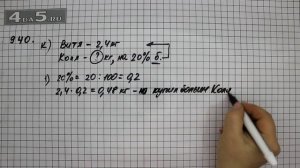 4DA5.RU
940.
к) Витя - 2,4 кг
Коля - ? кг, на 20% б.
1) 20% = 20 : 100 = 0,2
2,4 · 0,2 = 0,48 кг - на купил больше Коля